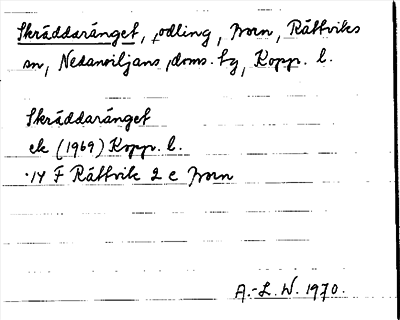 Skräddaränget, odling, Born, Rättviks
sn, Nedansiljans doms. tg, Kopp. l.
Skräddaränget
ek (1969) Kopp. l.
14 F Rättvik 2 c Born
A.-L. W. 1970.